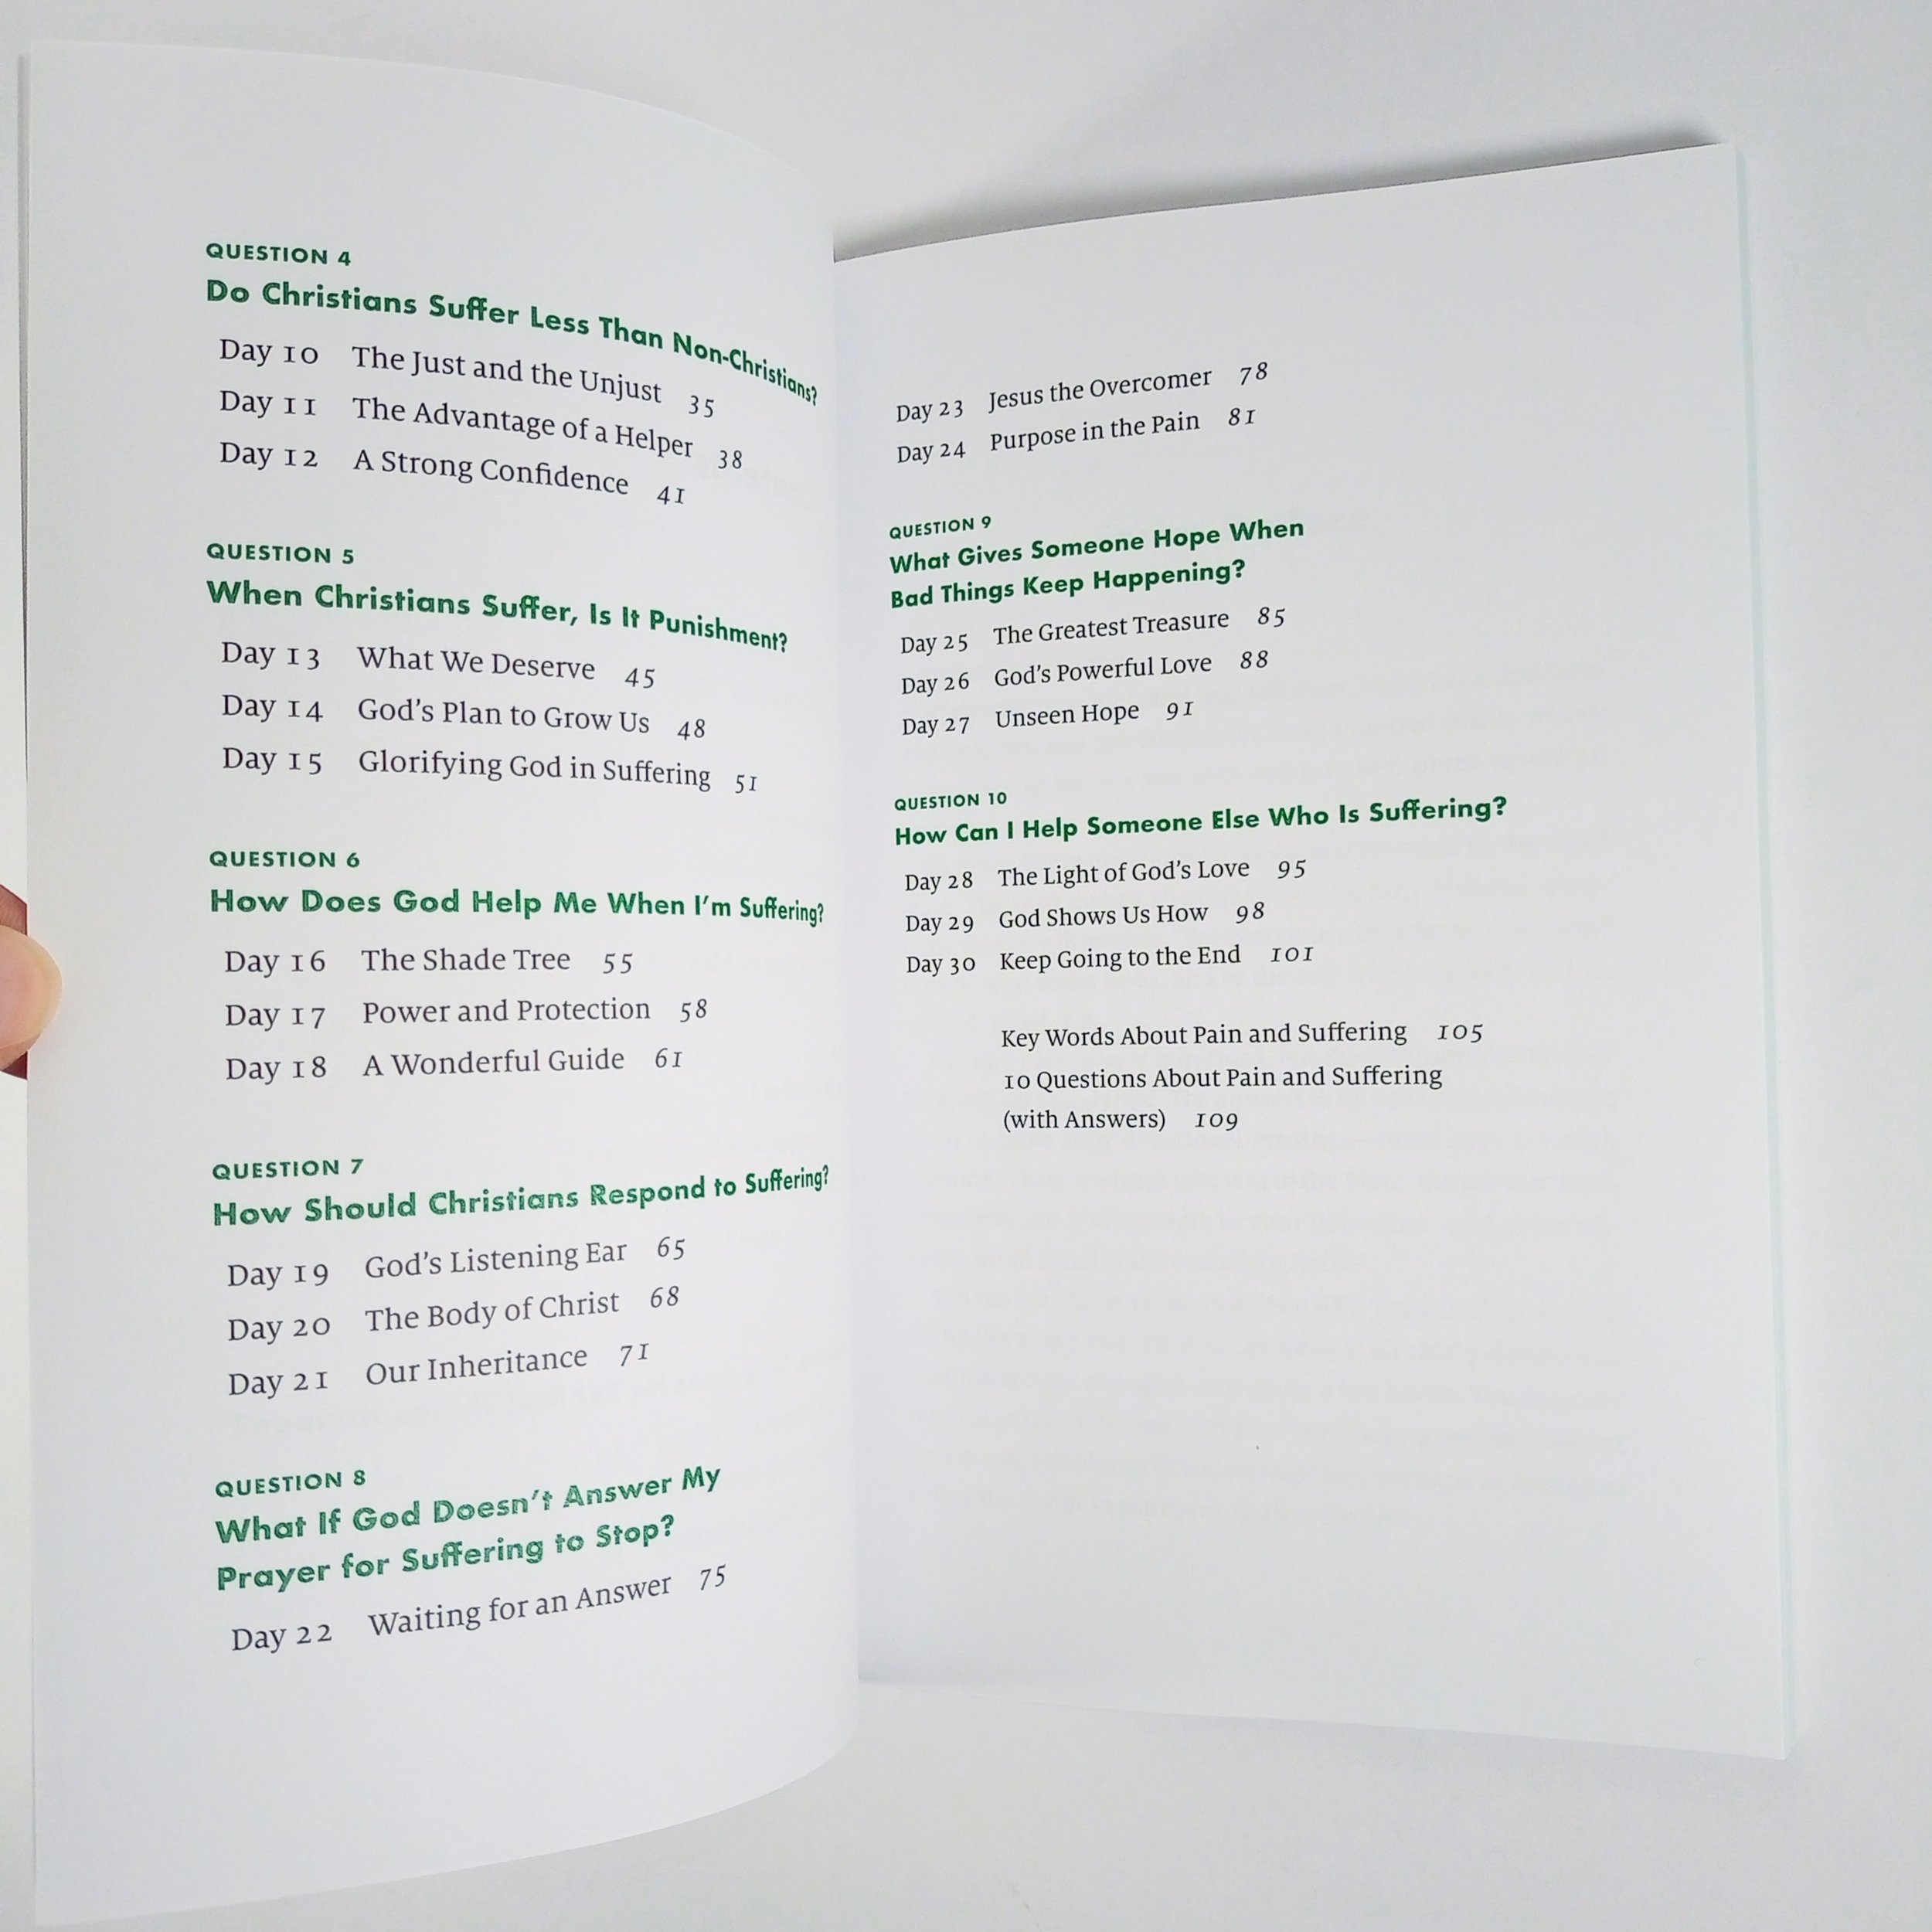 QUESTION 4
Do Christians Suffer Less Than Non-Christians?
Day 10 The Just and the Unjust 35
Day 11 The Advantage of a Helper 38
Day 12 A Strong Confidence 41
QUESTION 5
When Christians Suffer, Is It Punishment?
Day 13 What We Deserve 45
Day 14 God’s Plan to Grow Us 48
Day 15 Glorifying God in Suffering 51
QUESTION 6
How Does God Help Me When I’m Suffering?
Day 16 The Shade Tree 55
Day 17 Power and Protection 58
Day 18 A Wonderful Guide 61
QUESTION 7
How Should Christians Respond to Suffering?
Day 19 God’s Listening Ear 65
Day 20 The Body of Christ 68
Day 21 Our Inheritance 71
QUESTION 8
What If God Doesn’t Answer My
Prayer for Suffering to Stop?
Day 22 Waiting for an Answer 75
Day 23 Jesus the Overcomer 78
Day 24 Purpose in the Pain 81
QUESTION 9
What Gives Someone Hope When
Bad Things Keep Happening?
Day 25 The Greatest Treasure 85
Day 26 God’s Powerful Love 88
Day 27 Unseen Hope 91
QUESTION 10
How Can I Help Someone Else Who Is Suffering?
Day 28 The Light of God’s Love 95
Day 29 God Shows Us How 98
Day 30 Keep Going to the End 101
Key Words About Pain and Suffering 105
10 Questions About Pain and Suffering
(with Answers) 109